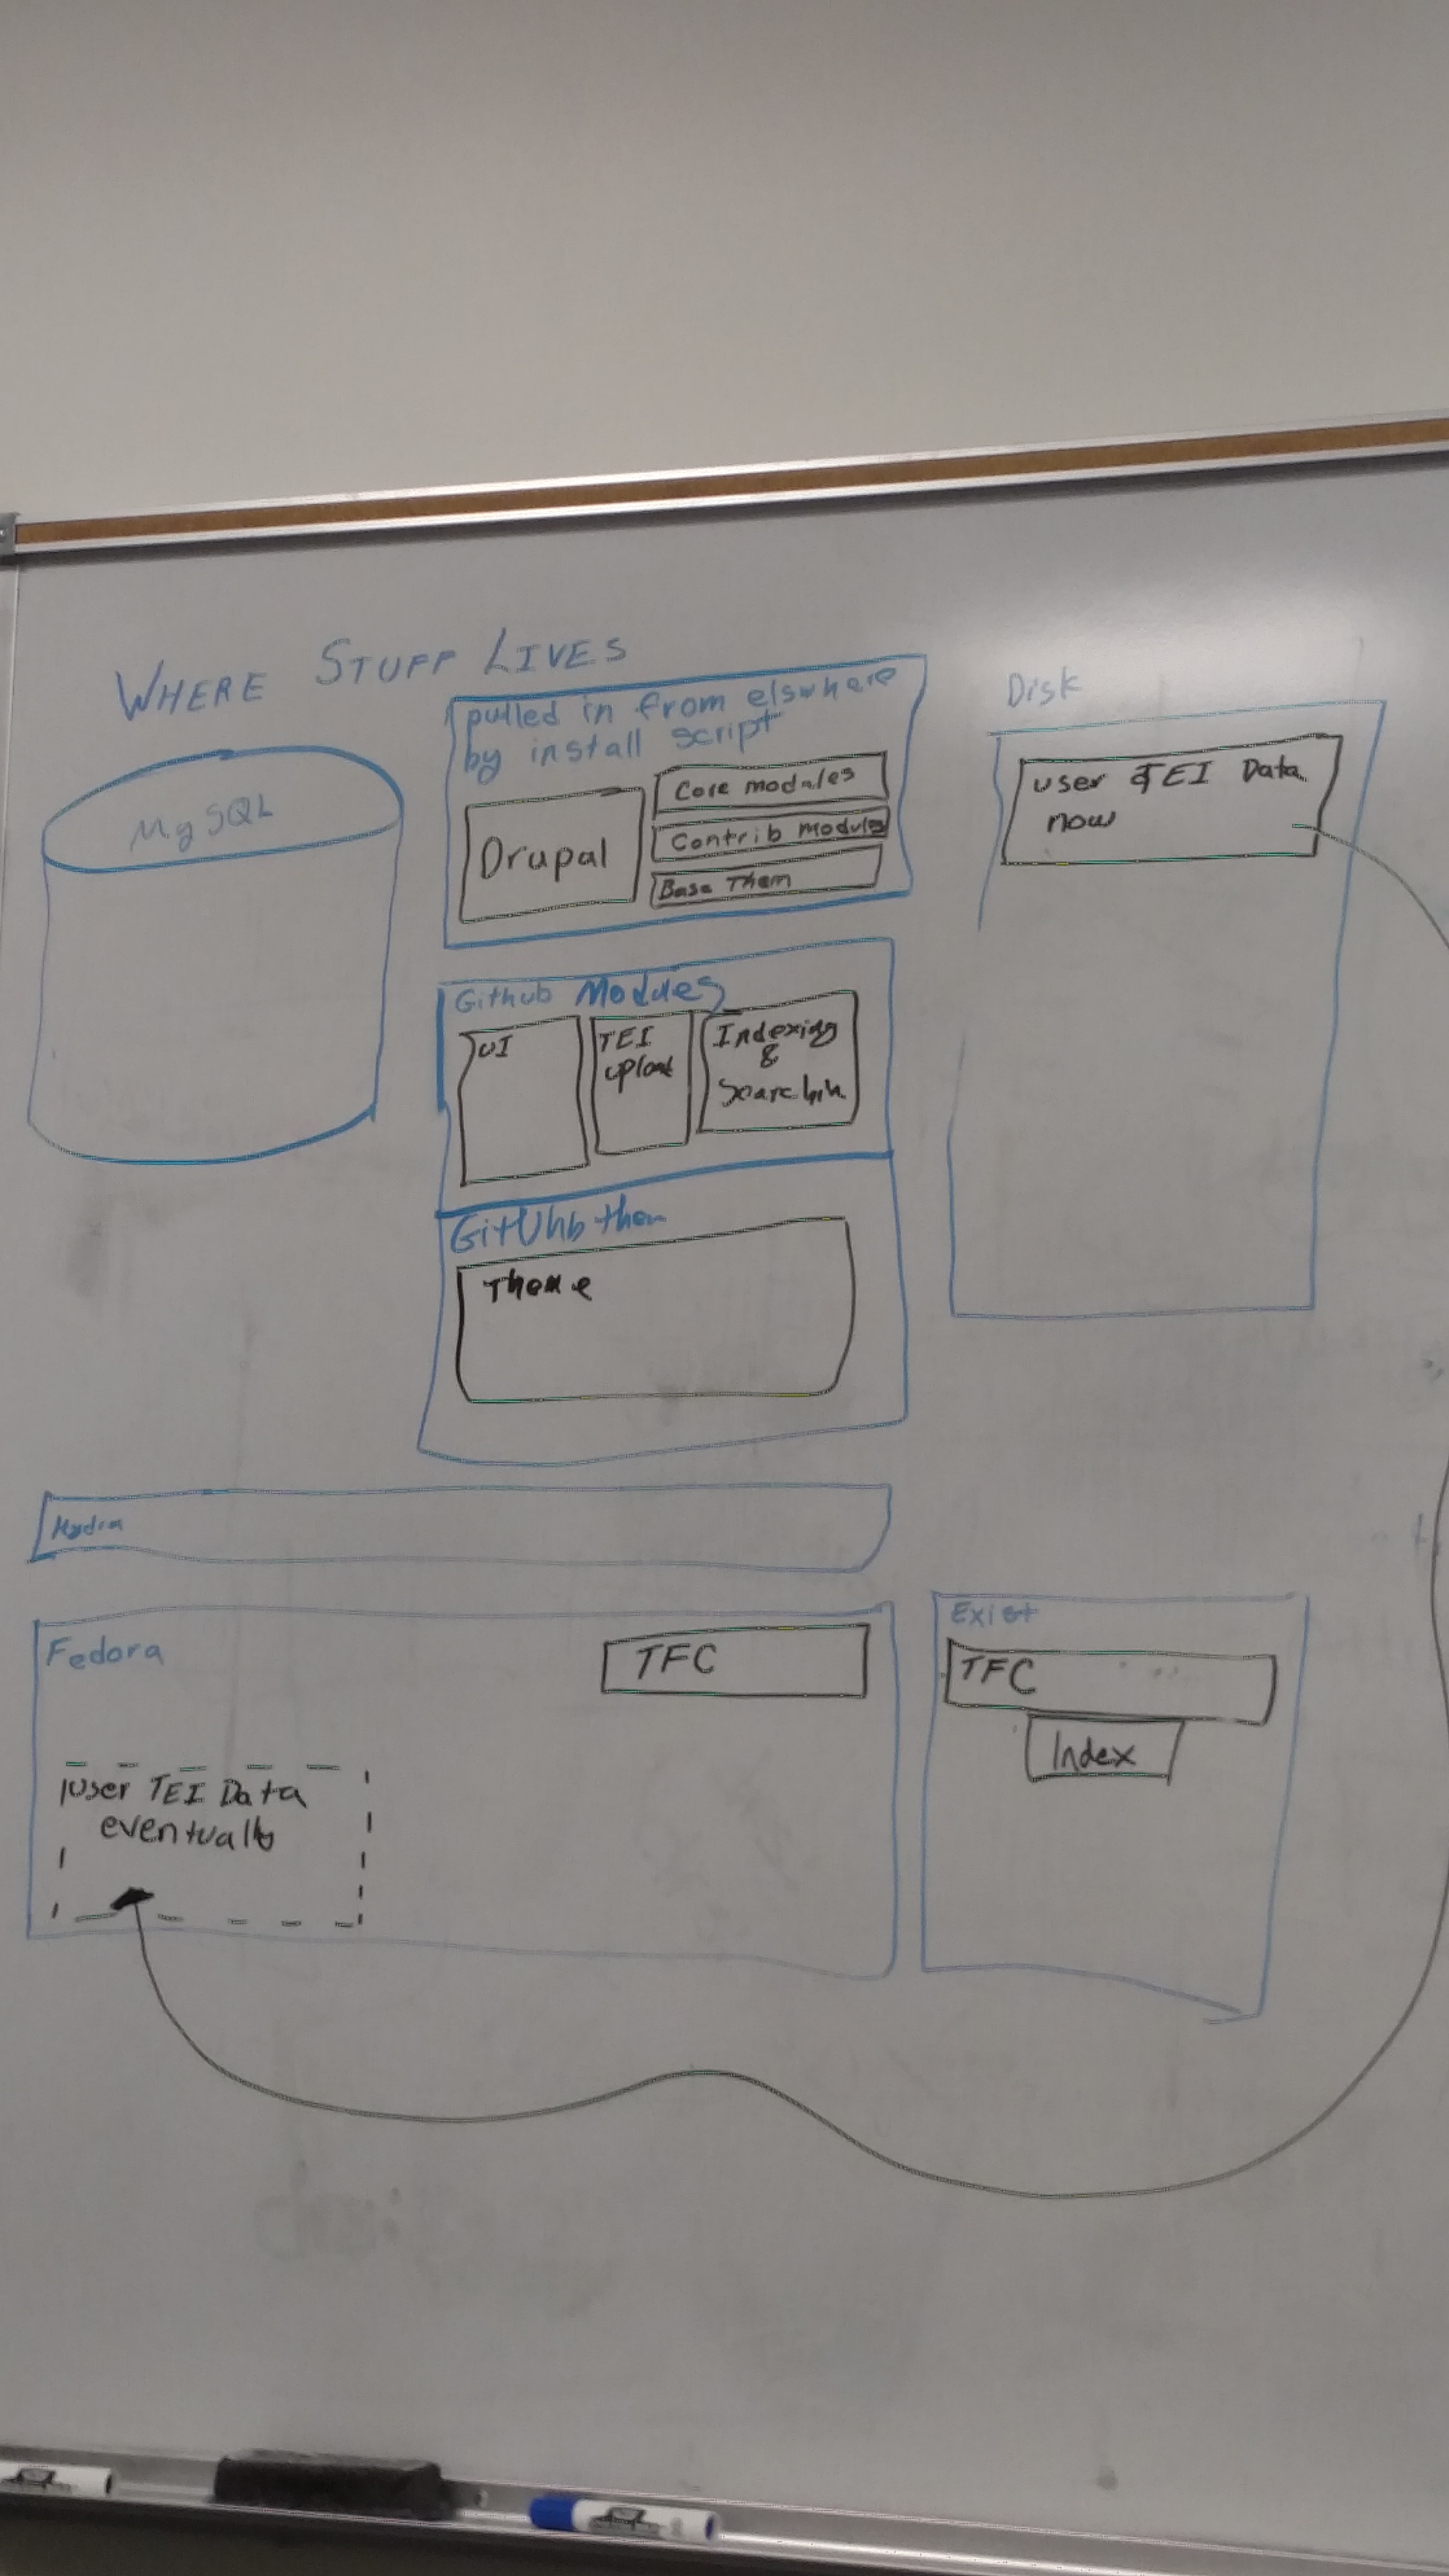 WHERE STUFF LIVES
MySQL
pulled in from elswhere
by install script
Drupal
Core modules
Contrib Modules
Base Them
Disk
user TEI Data
now
Github Modules
UI
TEI
upload
Indexing
&
Searchin
GitUhb them
Theme
Hydra
Fedora
TFC
user TEI Data
eventually
Exist
TFC
Index